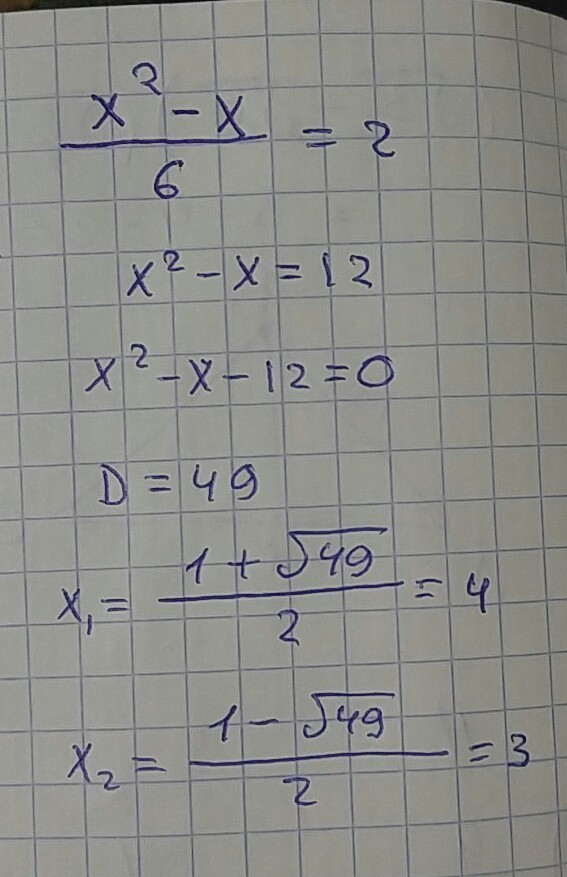 (x² - x)/6 = 2
x² - x = 12
x² - x - 12 = 0
D = 49
x₁ = (1 + √49)/2 = 4
x₂ = (1 - √49)/2 = 3